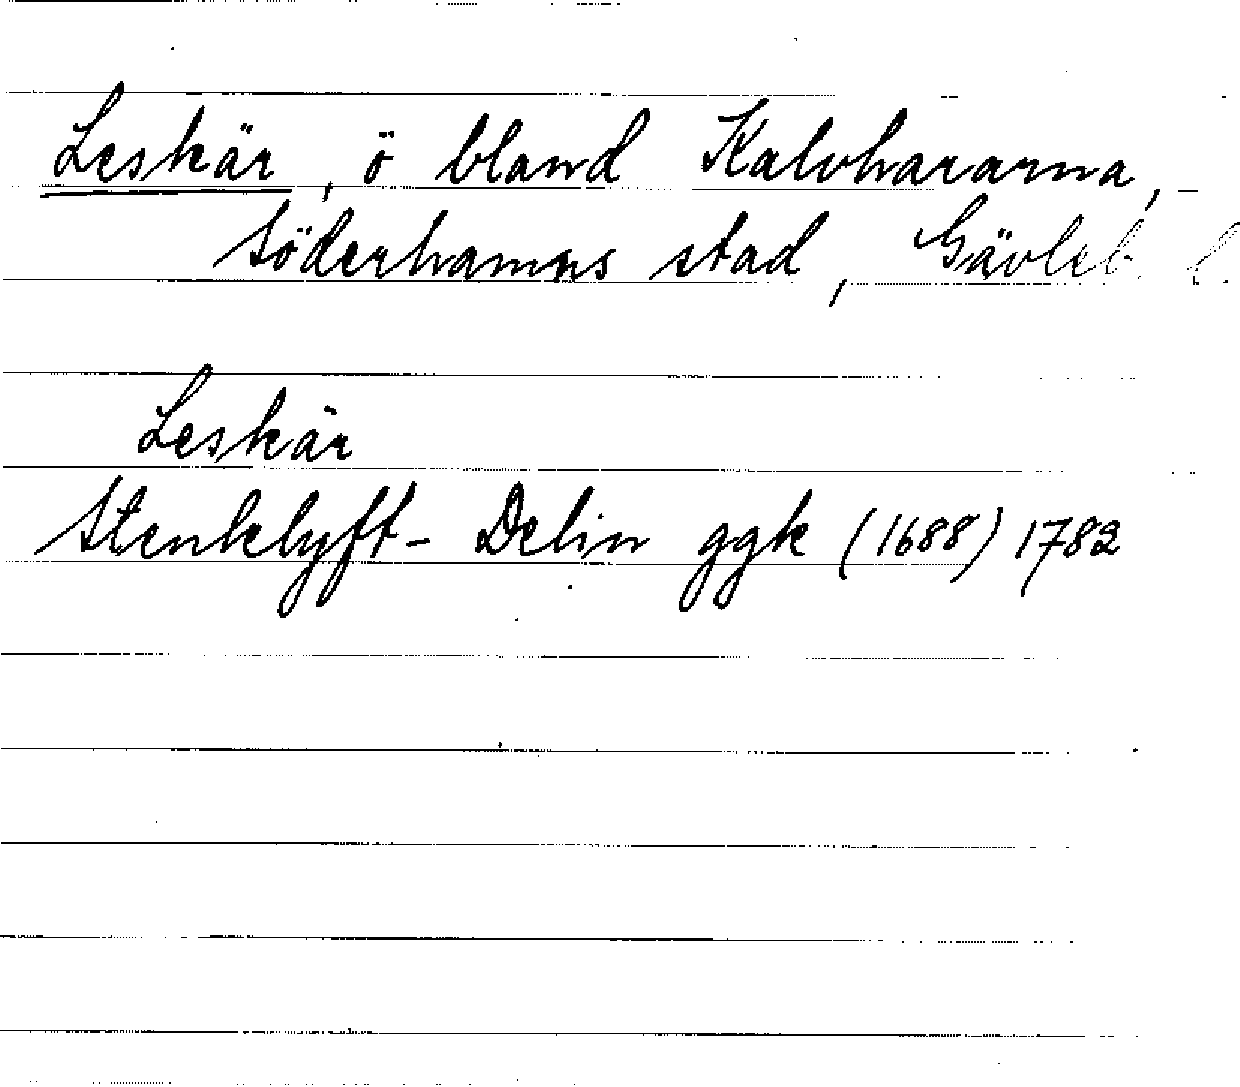 Leskär, ö bland Kalvhararna,
Söderhamns stad, Gävleb. l.
Leskär
Stenklyft- Delin ggk (1688) 1782